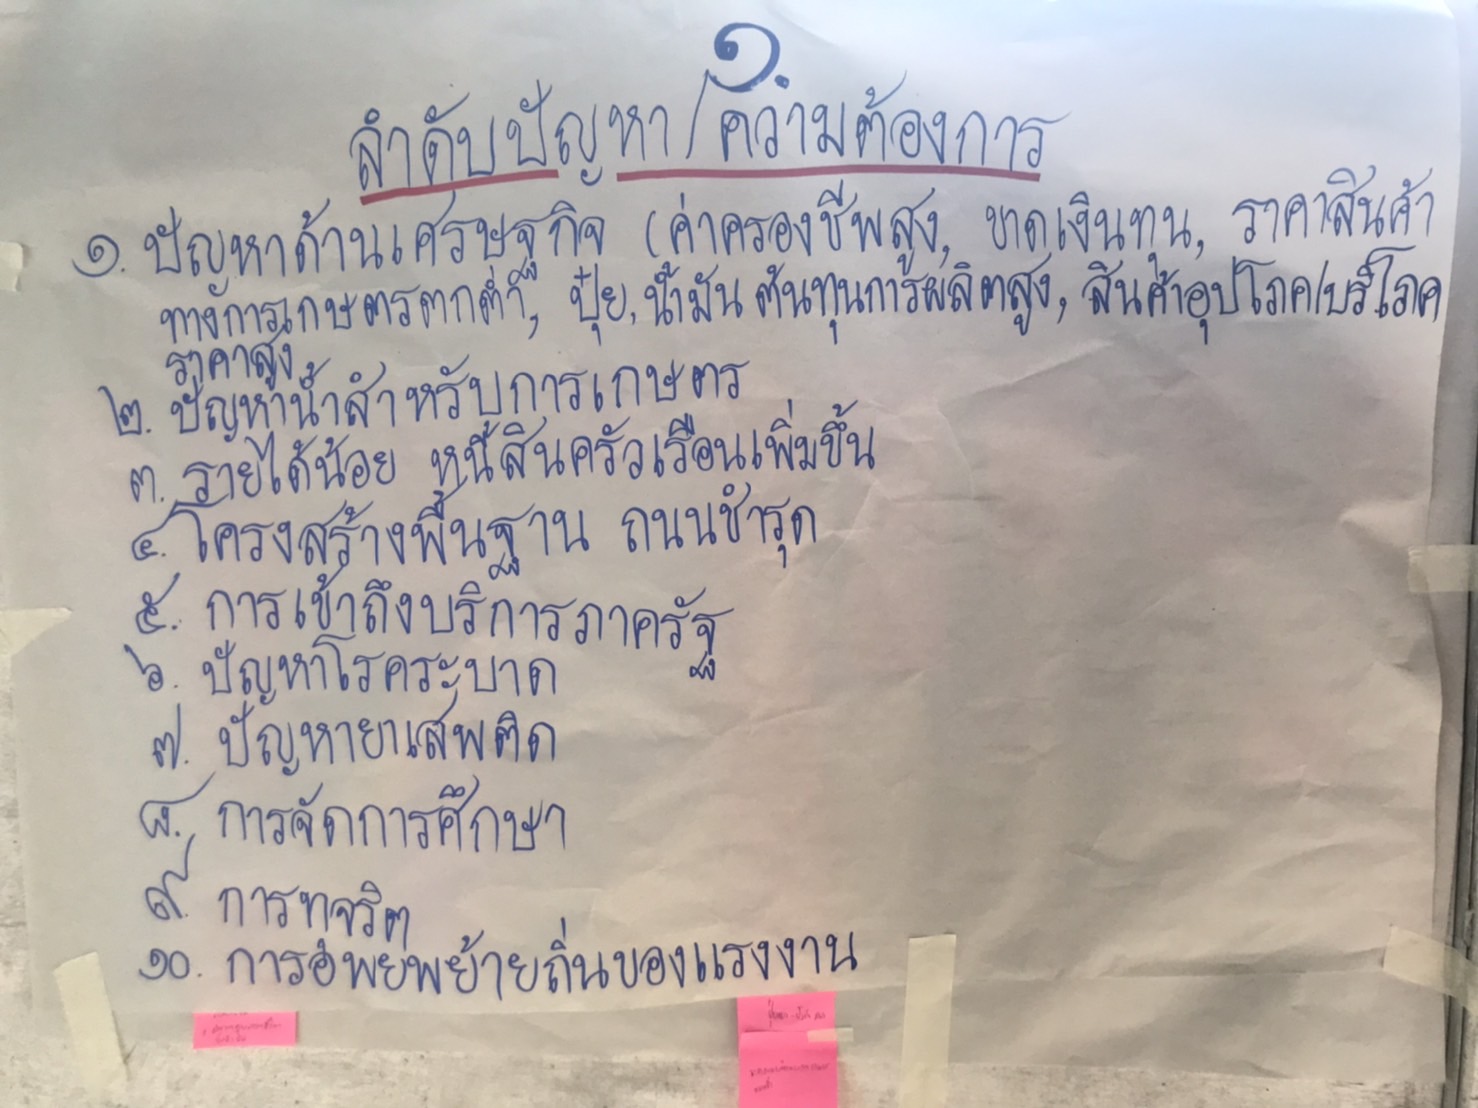 ๑.
ลำดับปัญหา/ความต้องการ
๑. ปัญหาด้านเศรษฐกิจ (ค่าครองชีพสูง, ขาดเงินทุน, ราคาสินค้า
ทางการเกษตรตกต่ำ, ปุ๋ย, น้ำมัน ต้นทุนการผลิตสูง, สินค้าอุปโภค/บริโภค
ราคาสูง
๒. ปัญหาน้ำสำหรับการเกษตร
๓. รายได้น้อย หนี้สินครัวเรือนเพิ่มขึ้น
๔. โครงสร้างพื้นฐาน ถนนชำรุด
๕. การเข้าถึงบริการภาครัฐ
๖. ปัญหาโรคระบาด
๗. ปัญหายาเสพติด
๘. การจัดการศึกษา
๙. การทุจริต
๑๐. การอพยพย้ายถิ่นของแรงงาน